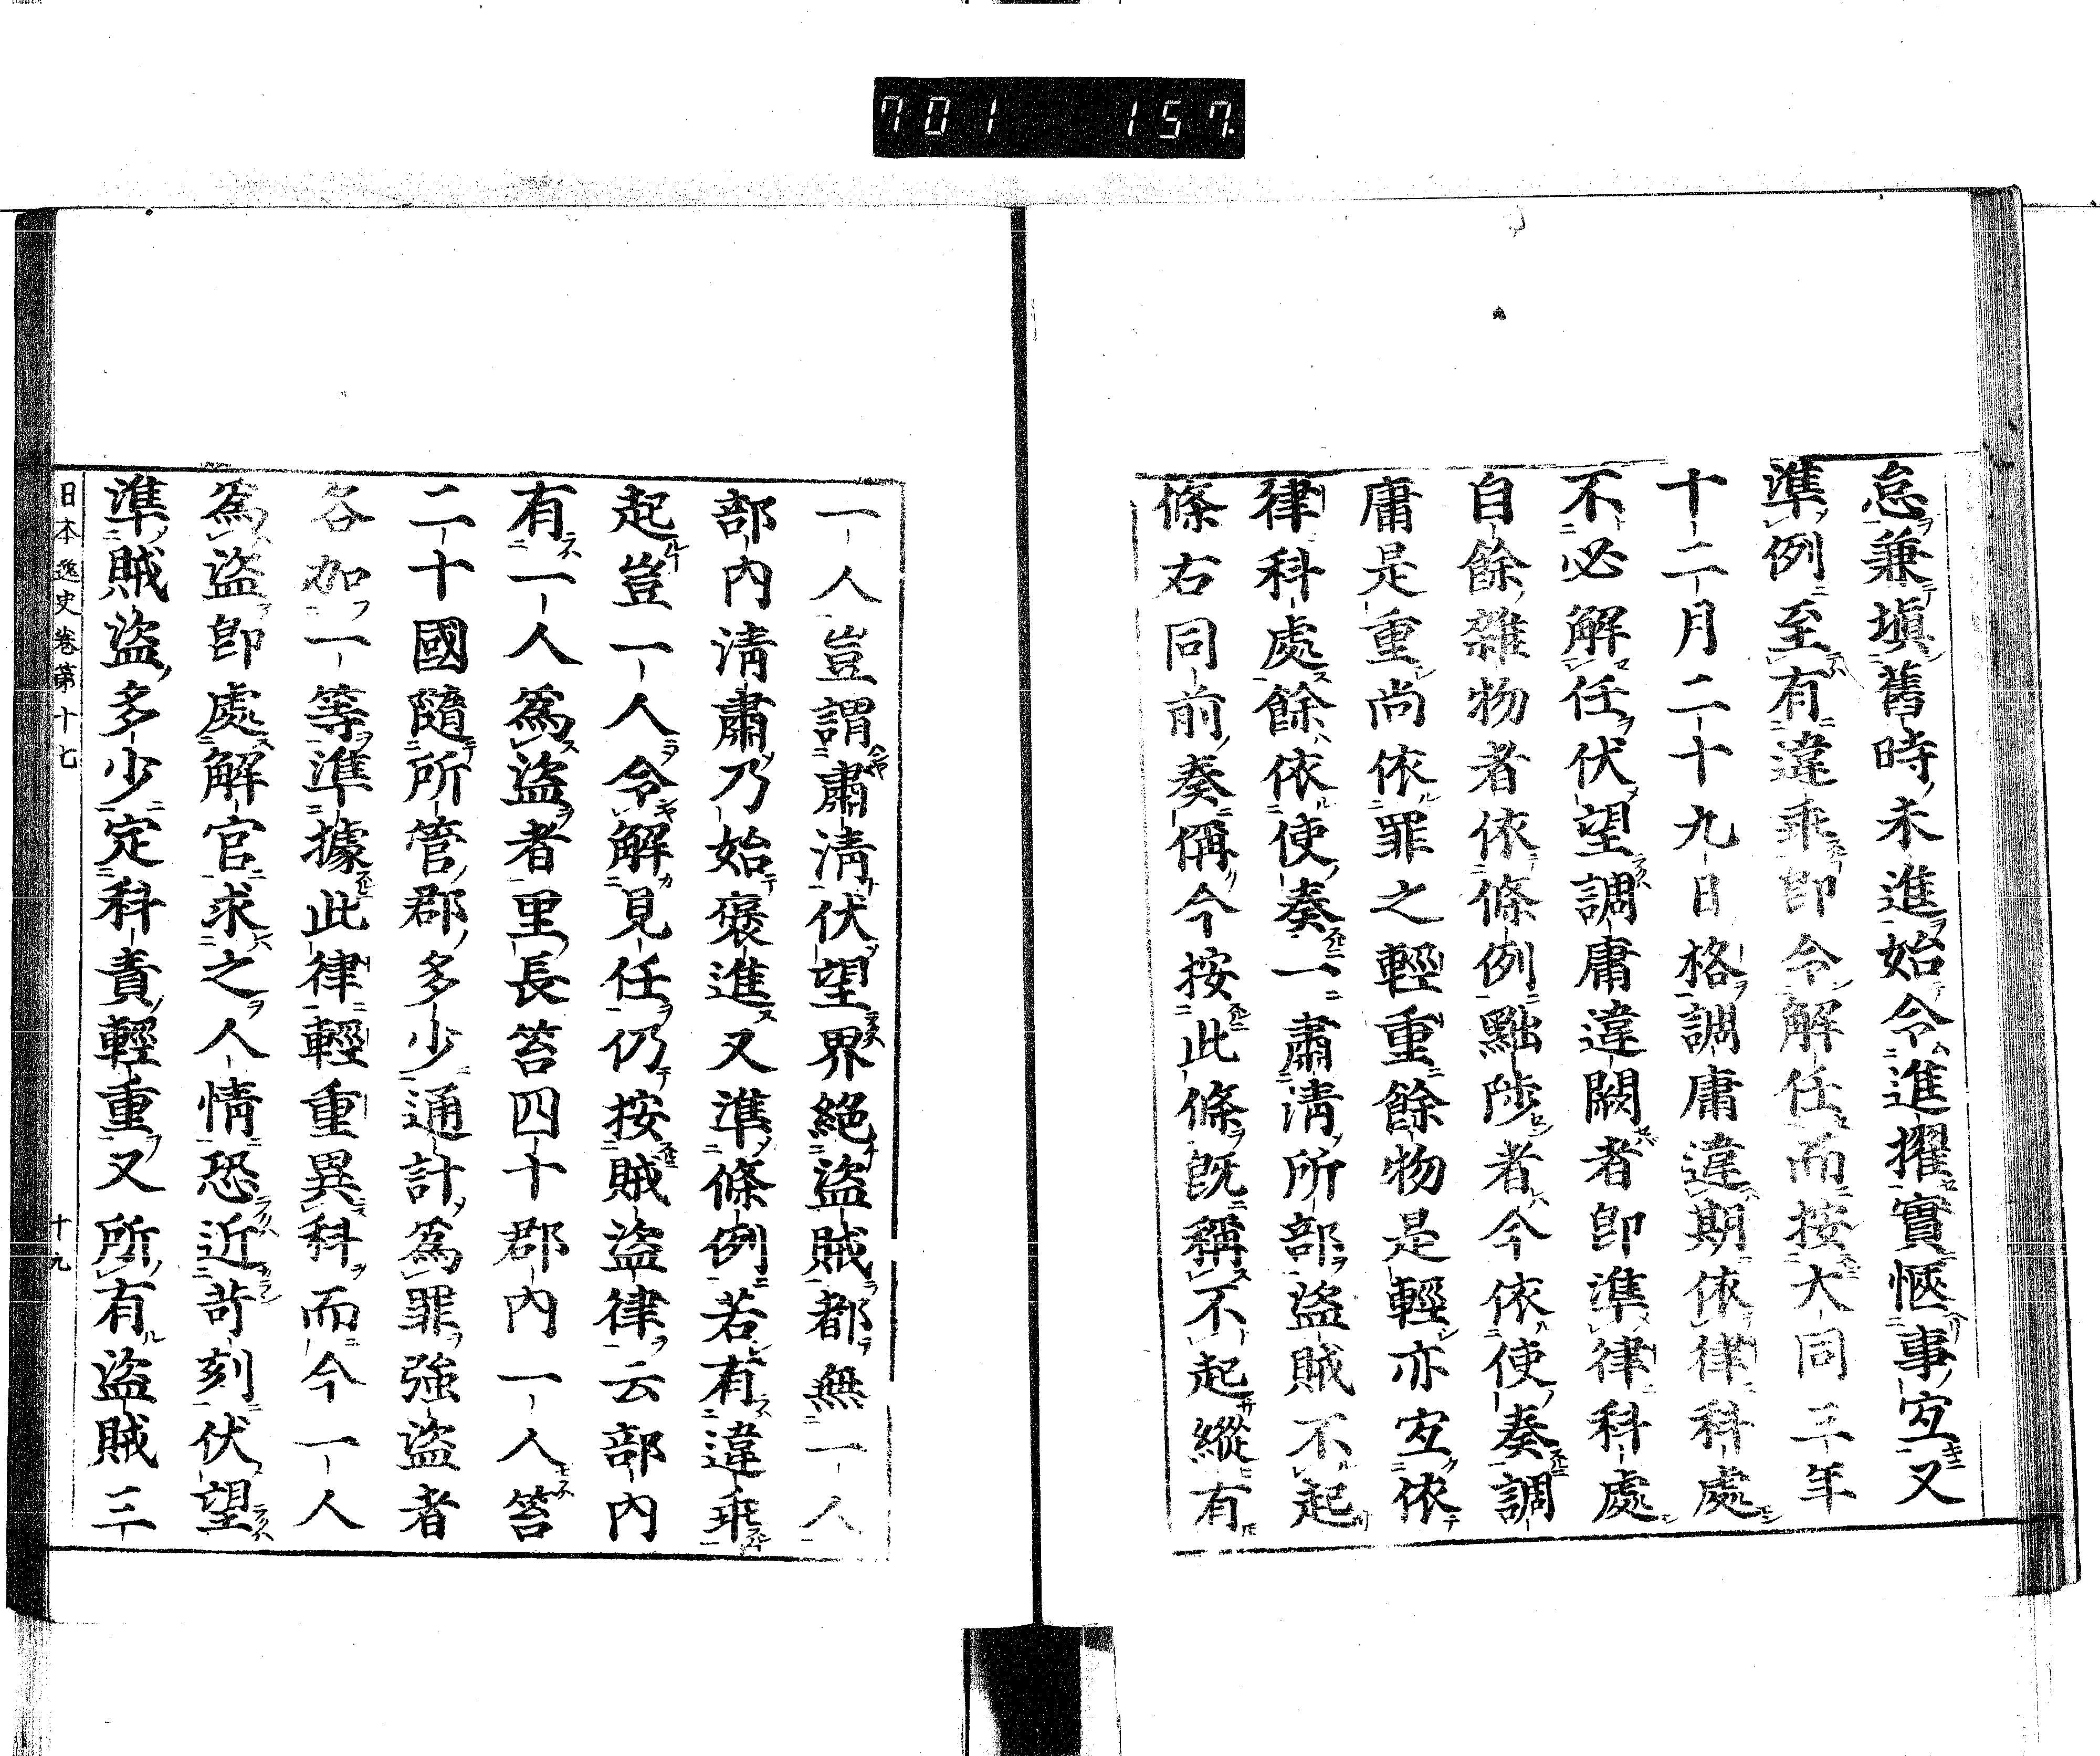 701 157.
怠兼塡舊時未進始令進擢實愜事宜又
準例至有違乖卽令解任而按大同三年
十二月二十九日格調庸違期依律科處
不必解任伏望調庸違闕者卽準律科處
自餘雜物者依條例黜陟者今依使奏調
庸是重尚依罪之輕重餘物是輕亦宜依
律科處餘依使奏一肅淸所部盜賊不起
條右同前奏偁今按此條旣稱不起縱有
一人豈謂肅淸伏望界絕盜賊都無一人
部內淸肅乃始褒進又準條例若有違乖
起豈一人令解見任仍按賊盜律云部內
有一人爲盜者里長笞四十郡內一人笞
二十國隨所管郡多少通計爲罪強盜者
各加一等準據此律輕重異科而今一人
爲盜卽處解官求之人情恐近苛刻伏望
準賊盜多少定科責輕重又所有盜賊三
日本逸史卷第十七 十九